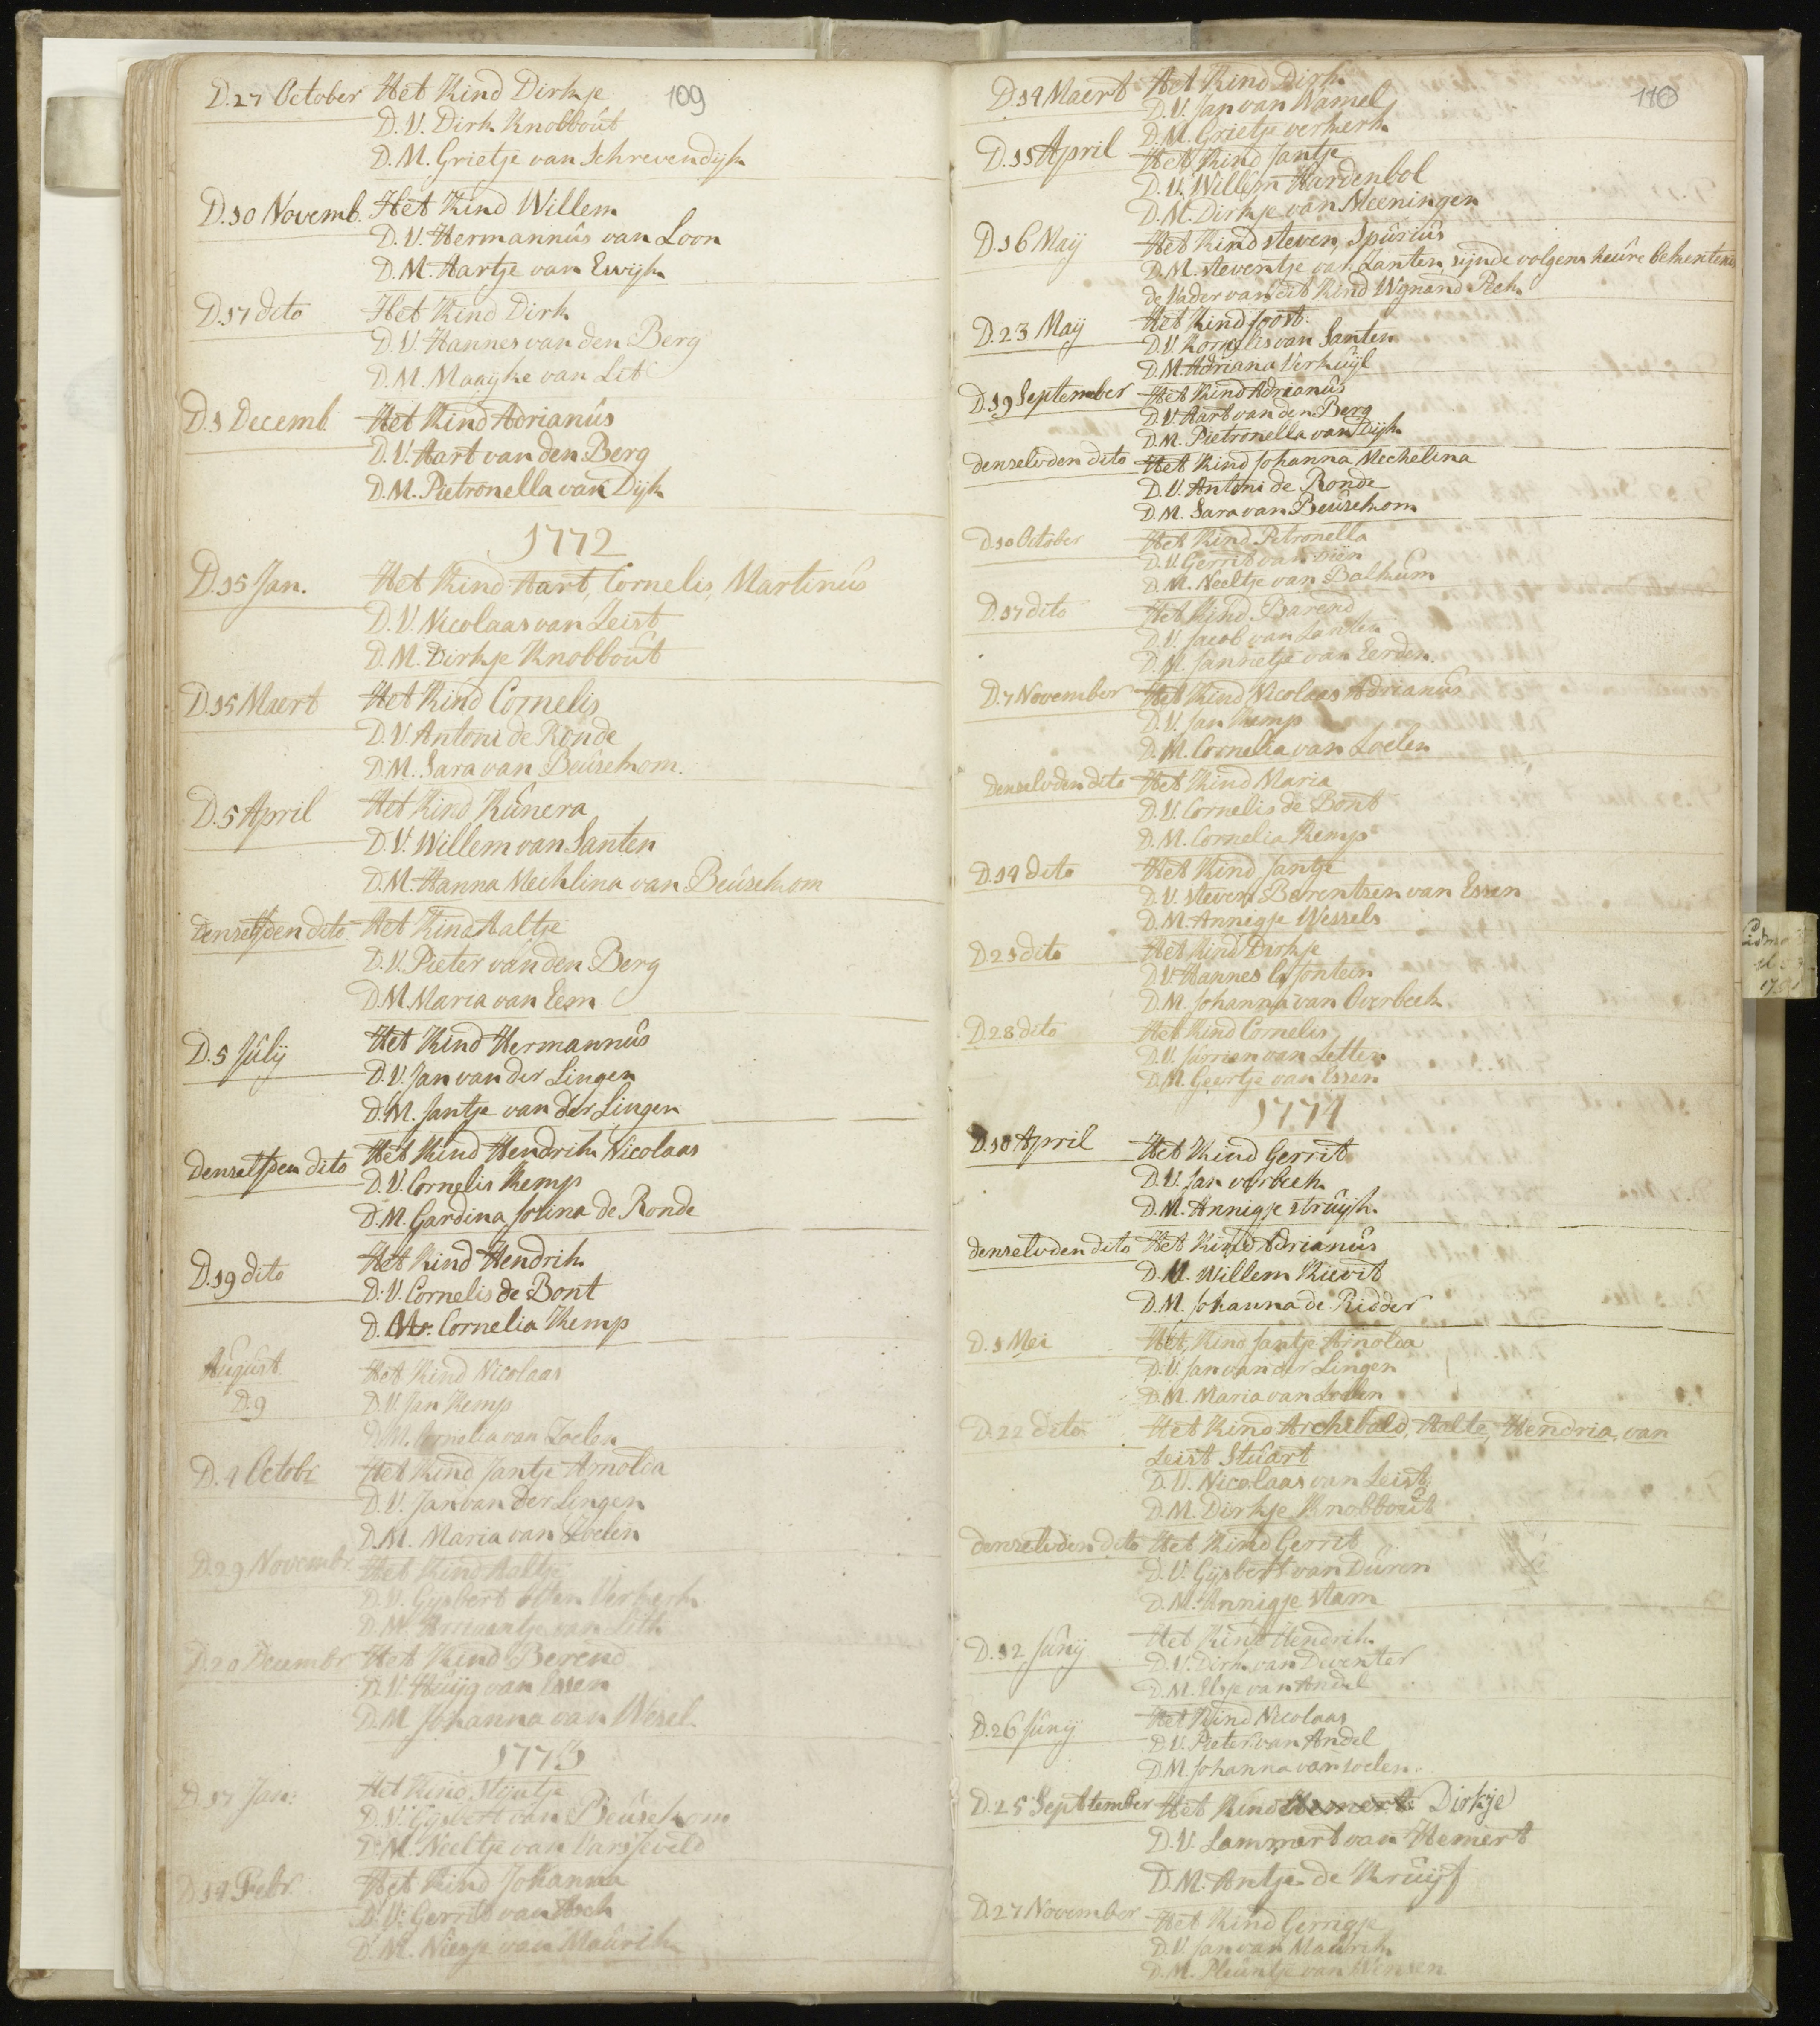 109
D. 27 October Het Kind Dirkje
D. V. Dirk Knobboût
D. M. Grietje van Schrevendijk
D. 10 Novemb. Het Kind Willem
D. V. Hermannûs van Loon
D. M. Aartje van Ewijk
D. 17 dito Het Kind Dirk
D. V. Hannes van den Berg
D. M. Maayke van Lit
D. 1 Decemb. Het Kind Adrianûs
D. V. Aart van den Berg
D. M. Pietronella van Dijk
1772
D. 15 Jan. Het Kind Aart, Cornelis, Martinûs
D. V. Nicolaas van Leist
D. M. Dirkje Knobboût
D. 15 Maert Het Kind Cornelis
D. V. Antoni de Ronde
D. M. Sara van Beûsekom.
D. 5 April Het Kind Kûnera
D. V. Willem van Santen
D. M. Hanna Mechlina van Beûsekom
denselfden dito Het Kind Aaltje
D. V. Pieter van den Berg
D. M. Maria van Eem
D. 5 Jûlij Het Kind Hermannûs
D. V. Jan van der Lingen
D. M. Jantje van der Lingen
denselfden dito Het Kind Hendrik Nicolaas
D. V. Cornelis Kemp
D. M. Gardina Josina de Ronde
D. 19 dito Het Kind Hendrik
D. V. Cornelis de Bont
D. M. Cornelia Kemp
Aûgûst. Het Kind Nicolaas
D. 9 D. V. Jan Kemp
D. M. Cornelia van Zoelen
D. 4 Octobr Het Kind Jantje Arnolda
D. V. Jan van der Lingen
D. M. Maria van Zoelen
D. 29 Novembr. Het Kind Aaltje
D. V. Gijsbert Otten Verkerk
D. M. Ariaantje van Lith
D. 20 Decembr Het Kind Berend
D. V. Hûijg van Essen
D. M. Johanna van Wesel
1773
D. 17 Jan: Het Kind Stijntje
D. V. Gijsbert van Beûsekom
D. M. Neeltje van Varsseveld
D. 14 Febr. Het Kind Johanna
D. V. Gerrit van Asch
D. M. Niesje van Maûrik
110
D. 14 Maert Het Kind Dirk
D. V. Jan van Wamel
D. M. Grietje verkerk
D. 11 April Het Kind Jantje
D. V. Willem Hardenbol
D. M. Dirkje van Meeningen
D. 16 Maij Het Kind steven, Spûriûs
D. M. steventje van Santen, sijnde volgens heûre bekentenis
de Vader van dit Kind Wijnand Peek
D. 23 Maij Het Kind Joost.
D. V. Kornelis van Santen
D. M. Adriana Verkuijl
D. 19 September Het Kind Adrianûs
D. V. Aart van den Berg
D. M. Pietronella van Dijk
denselvden dito Het Kind Johanna Mechelina
D. V. Antoni de Ronde
D. M. Sara van Beûsekom
D. 10 October Het Kind Petronella
D. V. Gerrit van
D. M. Neeltje van Balkum
D. 17 dito Het Kind Barend
D. V. Jacob van Santen
D. M. Jannetje van Eerden.
D. 7 November Het Kind Nicolaas Adrianûs
D. V. Jan Kemp
D. M. Cornelia van Zoelen
denselvden dito Het Kind Maria
D. V. Cornelis de Bont
D. M. Cornelia Kemp
D. 14 dito Het Kind Jantje
D. V. steven Berentsen van Essen
D. M. Annigje Wessels
D. 21 dito Het Kind Dirkje
D. V. Hannes la fontein
D. M. Johanna van Overbeek
D. 28 dito Het Kind Cornelis
D. V. Jûrrian van Letten
D. M. Geertje van Essen
1774
D. 10 April Het Kind Gerrit
D. V. Jan verbeek
D. M. Annigje strûijk.
denselvden dito Het Kind Adrianûs
D. V. Willem Kievit
D. M. Johanna de Ridder
D. 1 Mei Het Kind Jantje Arnolda
D. V. Jan van der Lingen
D. M. Maria van Zoelen
D. 22 dito Het Kind Archibald, Aalte, Hendria, van
Leist Stûart
D. V. Nicolaas van Leist
D. M. Dirkje Knobboût
denselvden dito Het Kind Gerrit
D. V. Gijsbert van Dûren
D. M. Annigje stam
D. 12 Jûnij Het Kind Hendrik
D. V. Dirk van Deventer
D. M. Elsje van Andel
D. 26 Jûnij Het Kind Nicolaas
D. V. Pieter van Andel
D. M. Johanna van soelen.
D. 25 Septtember Het Kind Dirkje
D. V. Lammert van Hemert
D. M. Antje de Krûijf
D. 27 November Het Kind Gerrigje
D. V. Jan van Maûrik
D. M. Pleûntje van Wensen